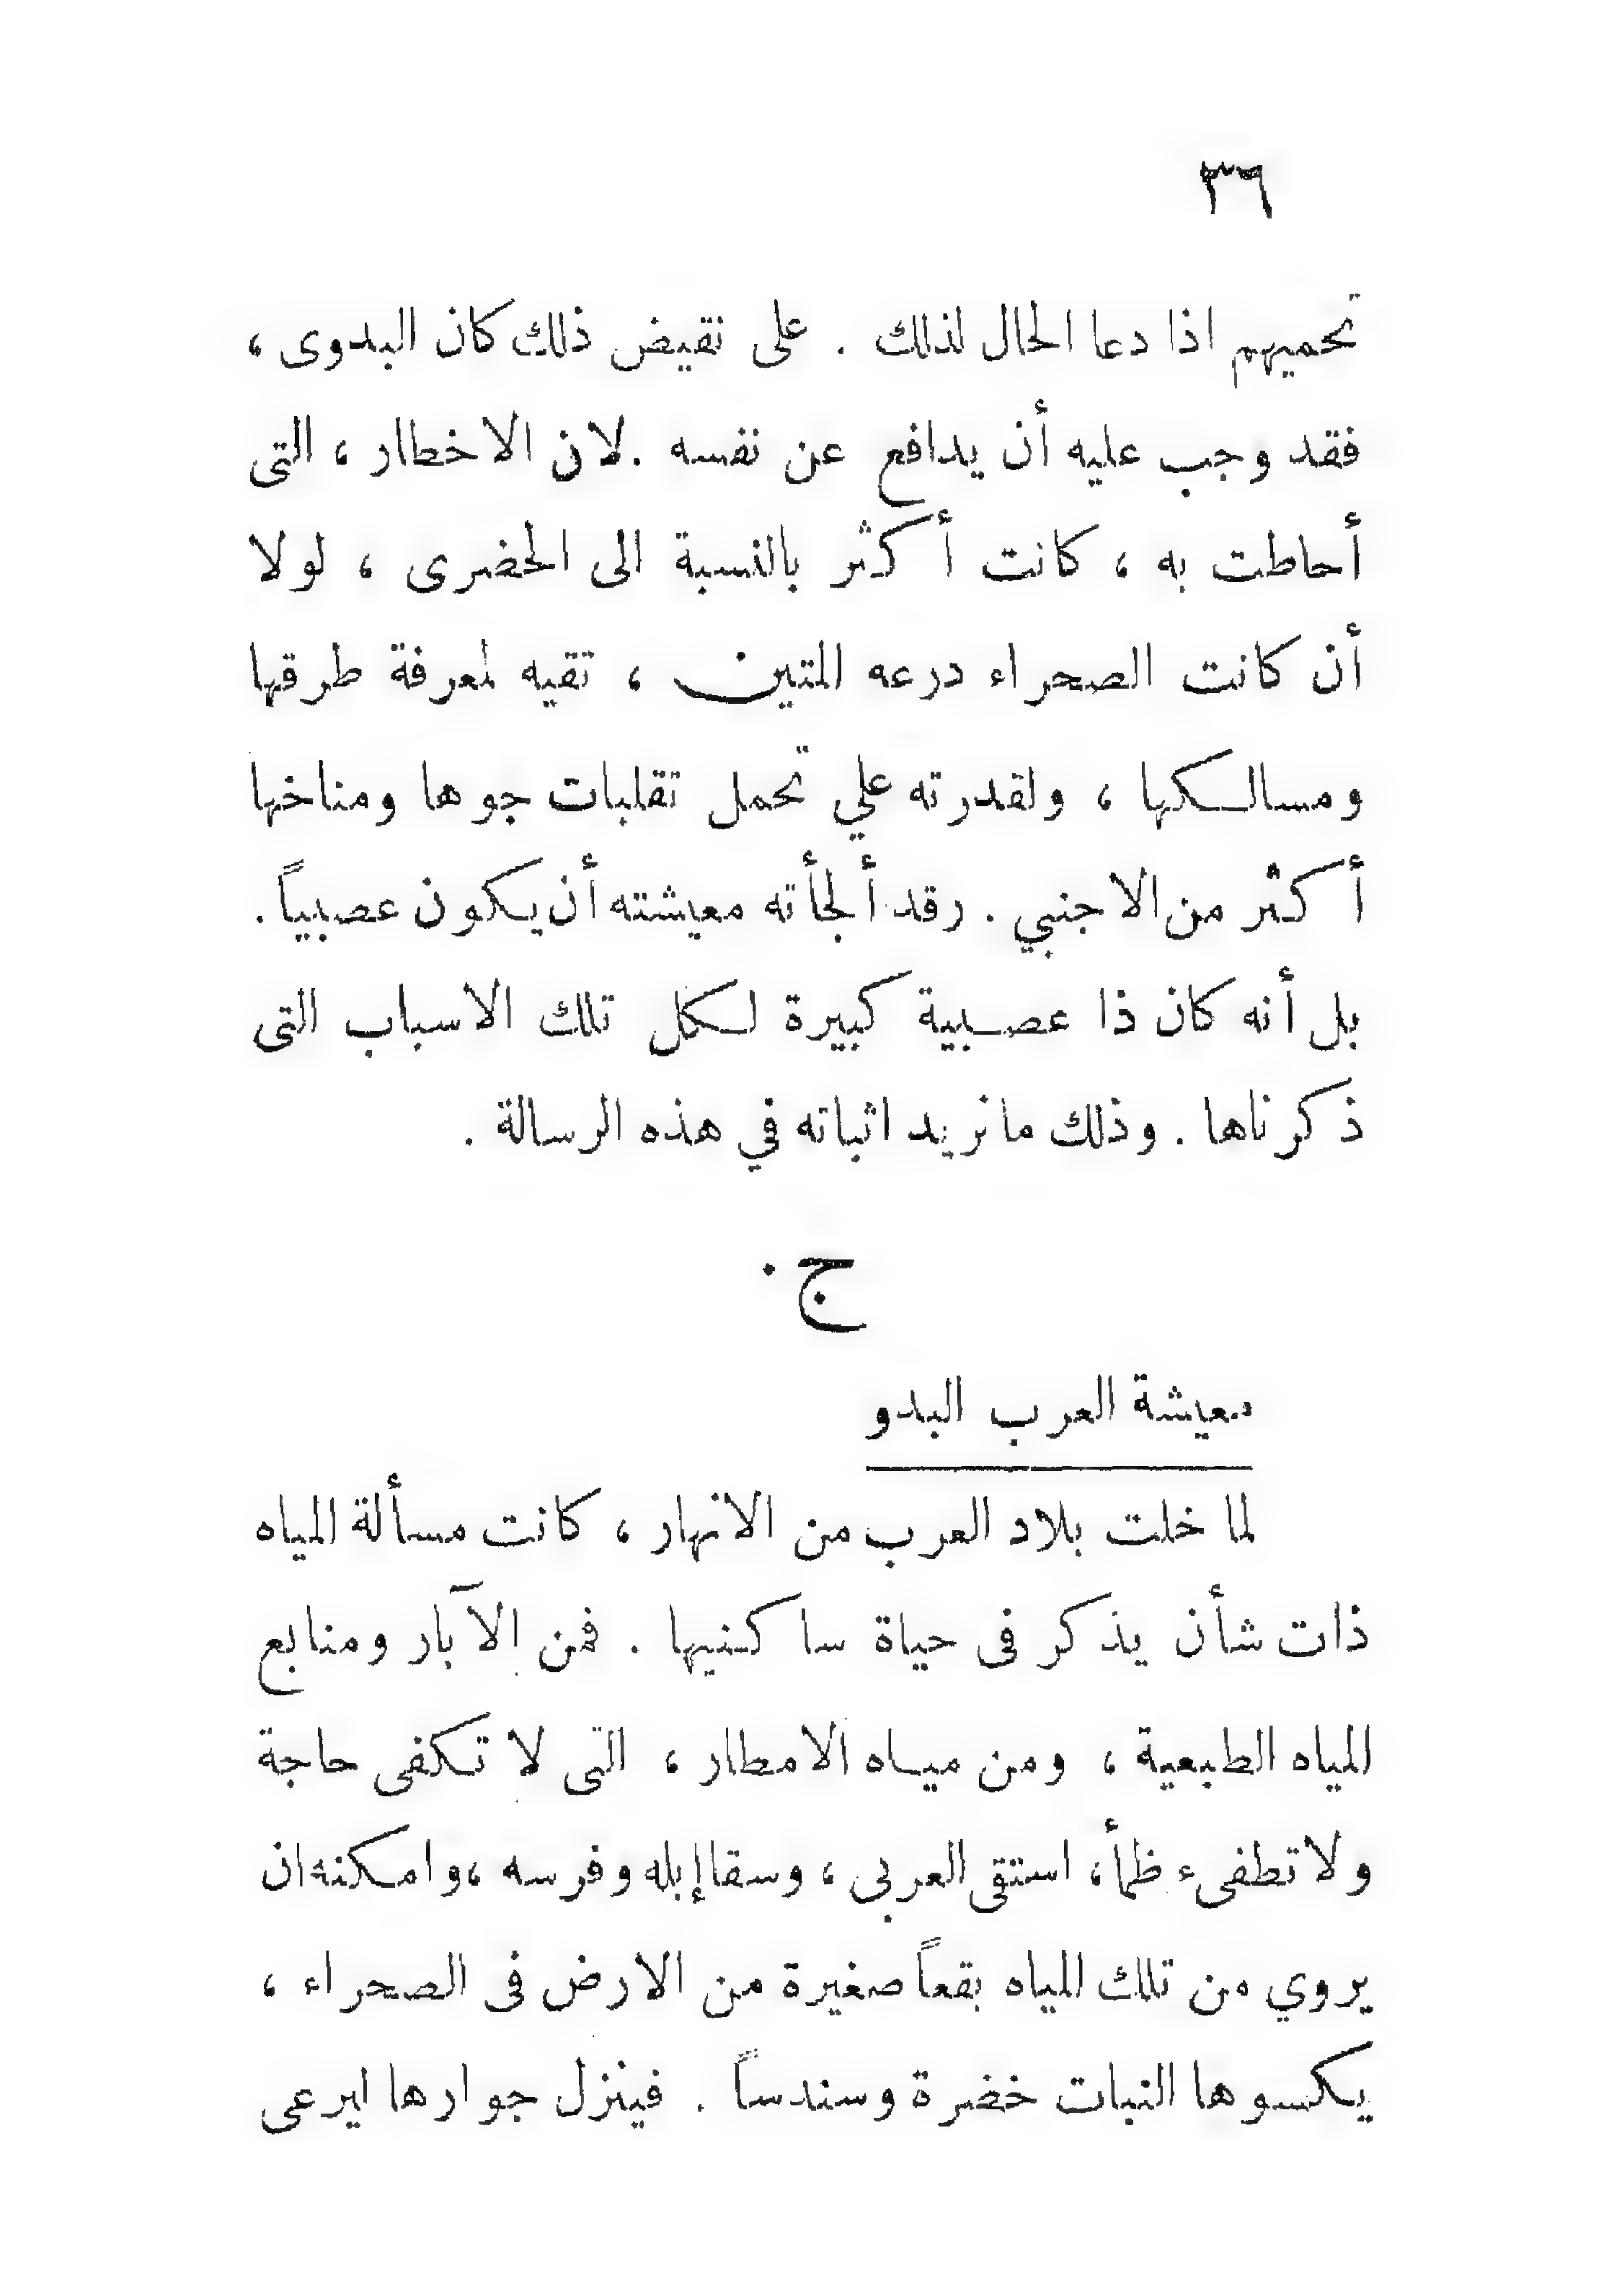 ٣٦
تحميهم اذا دعا الحال لذلك . على نقيض ذلك كان البدوى ،
فقد وجب عليه أن يدافع عن نفسه .لان الاخطار ، التى
أحاطت به ، كانت أكثر بالنسبة الى الحضرى ، لولا
أن كانت الصحراء درعه المتين ، تقيه لمعرفة طرقها
ومسالكها ، ولقدرته علي تحمل تقلبات جوها ومناخها
أكثر من الاجنبي . رقد ألجأته معيشته أن يكون عصبياً .
بل أنه كان ذا عصبية كبيرة لكل تلك الاسباب التى
ذكرناها . وذلك ما نريد اثباته في هذه الرسالة .
ج .
معيشة العرب البدو
لما خلت بلاد العرب من الانهار ، كانت مسألة المياه
ذات شأن يذكر فى حياة ساكنيها . فمن الآبار ومنابع
المياه الطبعية ، ومن مياه الامطار ، التى لا تكفى حاجة
ولا تطفىء ظمأ ، استقى العربى ، وسقا إبله وفرسه ، وامكنه ان
يروي من تلك المياه بقعاً صغيرة من الارض فى الصحراء ،
يكسوها النبات خضرة وسندساً . فينزل جوارها ايرعى